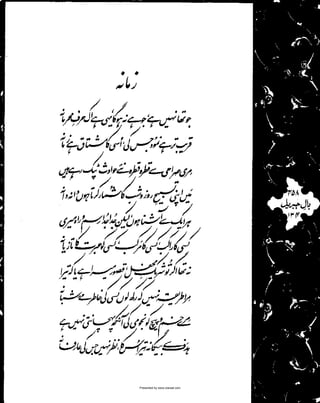 زمانہ
جو تھا نہیں ہے، جو ہے نہ ہوگا، یہی ہے اک حرفِ محرمانہ
قریب تر ہے نمود جس کی، اُسی کا مشتاق ہے زمانہ
مری صراحی سے قطرہ قطرہ نئے حوادث ٹپک رہے ہیں
میں اپنی تسبیحِ روز و شب کا شمار کرتا ہوں دانہ دانہ
ہر ایک سے آشنا ہوں، لیکن جدا جدا رسم و راہ میری
کسی کا راکب، کسی کا مرکب، کسی کو عبرت کا تازیانہ
نہ تھا اگر تو شریکِ محفل، قصور میرا ہے یا کہ تیرا
مرا طریقہ نہیں کہ رکھ لوں کسی کی خاطر مئے شبانہ
مرے خم و پیچ کو نجومی کی آنکھ پہچانتی نہیں ہے
ہدف سے بیگانہ تیر اُس کا، نظر نہیں جس کی عارفانہ
۳۵۸
بالِ جبریل
Presented by